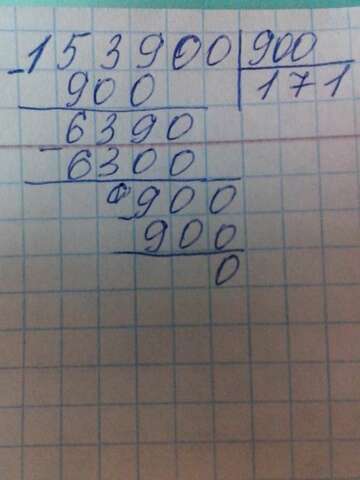 -153900|900
900 171
6390
-6300
0900
-900
0